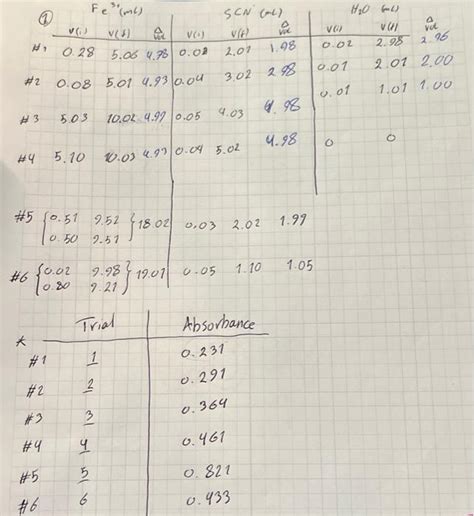 ① Fe³⁺ (mL) SCN⁻ (mL) H₂O (mL)
V(i) V(f) Δ Vol V(i) V(f) Δ Vol V(i) V(f) Δ Vol
#1 0.28 5.06 4.98 0.03 2.01 1.98 0.02 2.98 2.96
#2 0.08 5.01 4.93 0.04 3.02 2.98 0.01 2.01 2.00
#3 5.03 10.02 4.99 0.05 4.03 0.01 1.01 1.00
#4 5.10 10.03 4.93 0.04 5.02 4.98 0 0
#5 0.51 9.52 18.02 0.03 2.02 1.99
0.50 9.51
#6 0.02 9.98 19.01 0.05 1.10 1.05
0.80 9.21
* Trial Absorbance
#1 1 0.231
#2 2 0.291
#3 3 0.364
#4 4 0.461
#5 5 0.821
#6 6 0.433